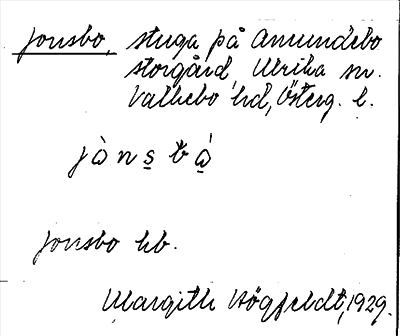 Jonsbo, stuga på Amundebo
storgård Ulrika sn.
Valkebo hd, Österg. l.
jònsbá
Jonsbo hb.
Margith Högfeldt, 1929.